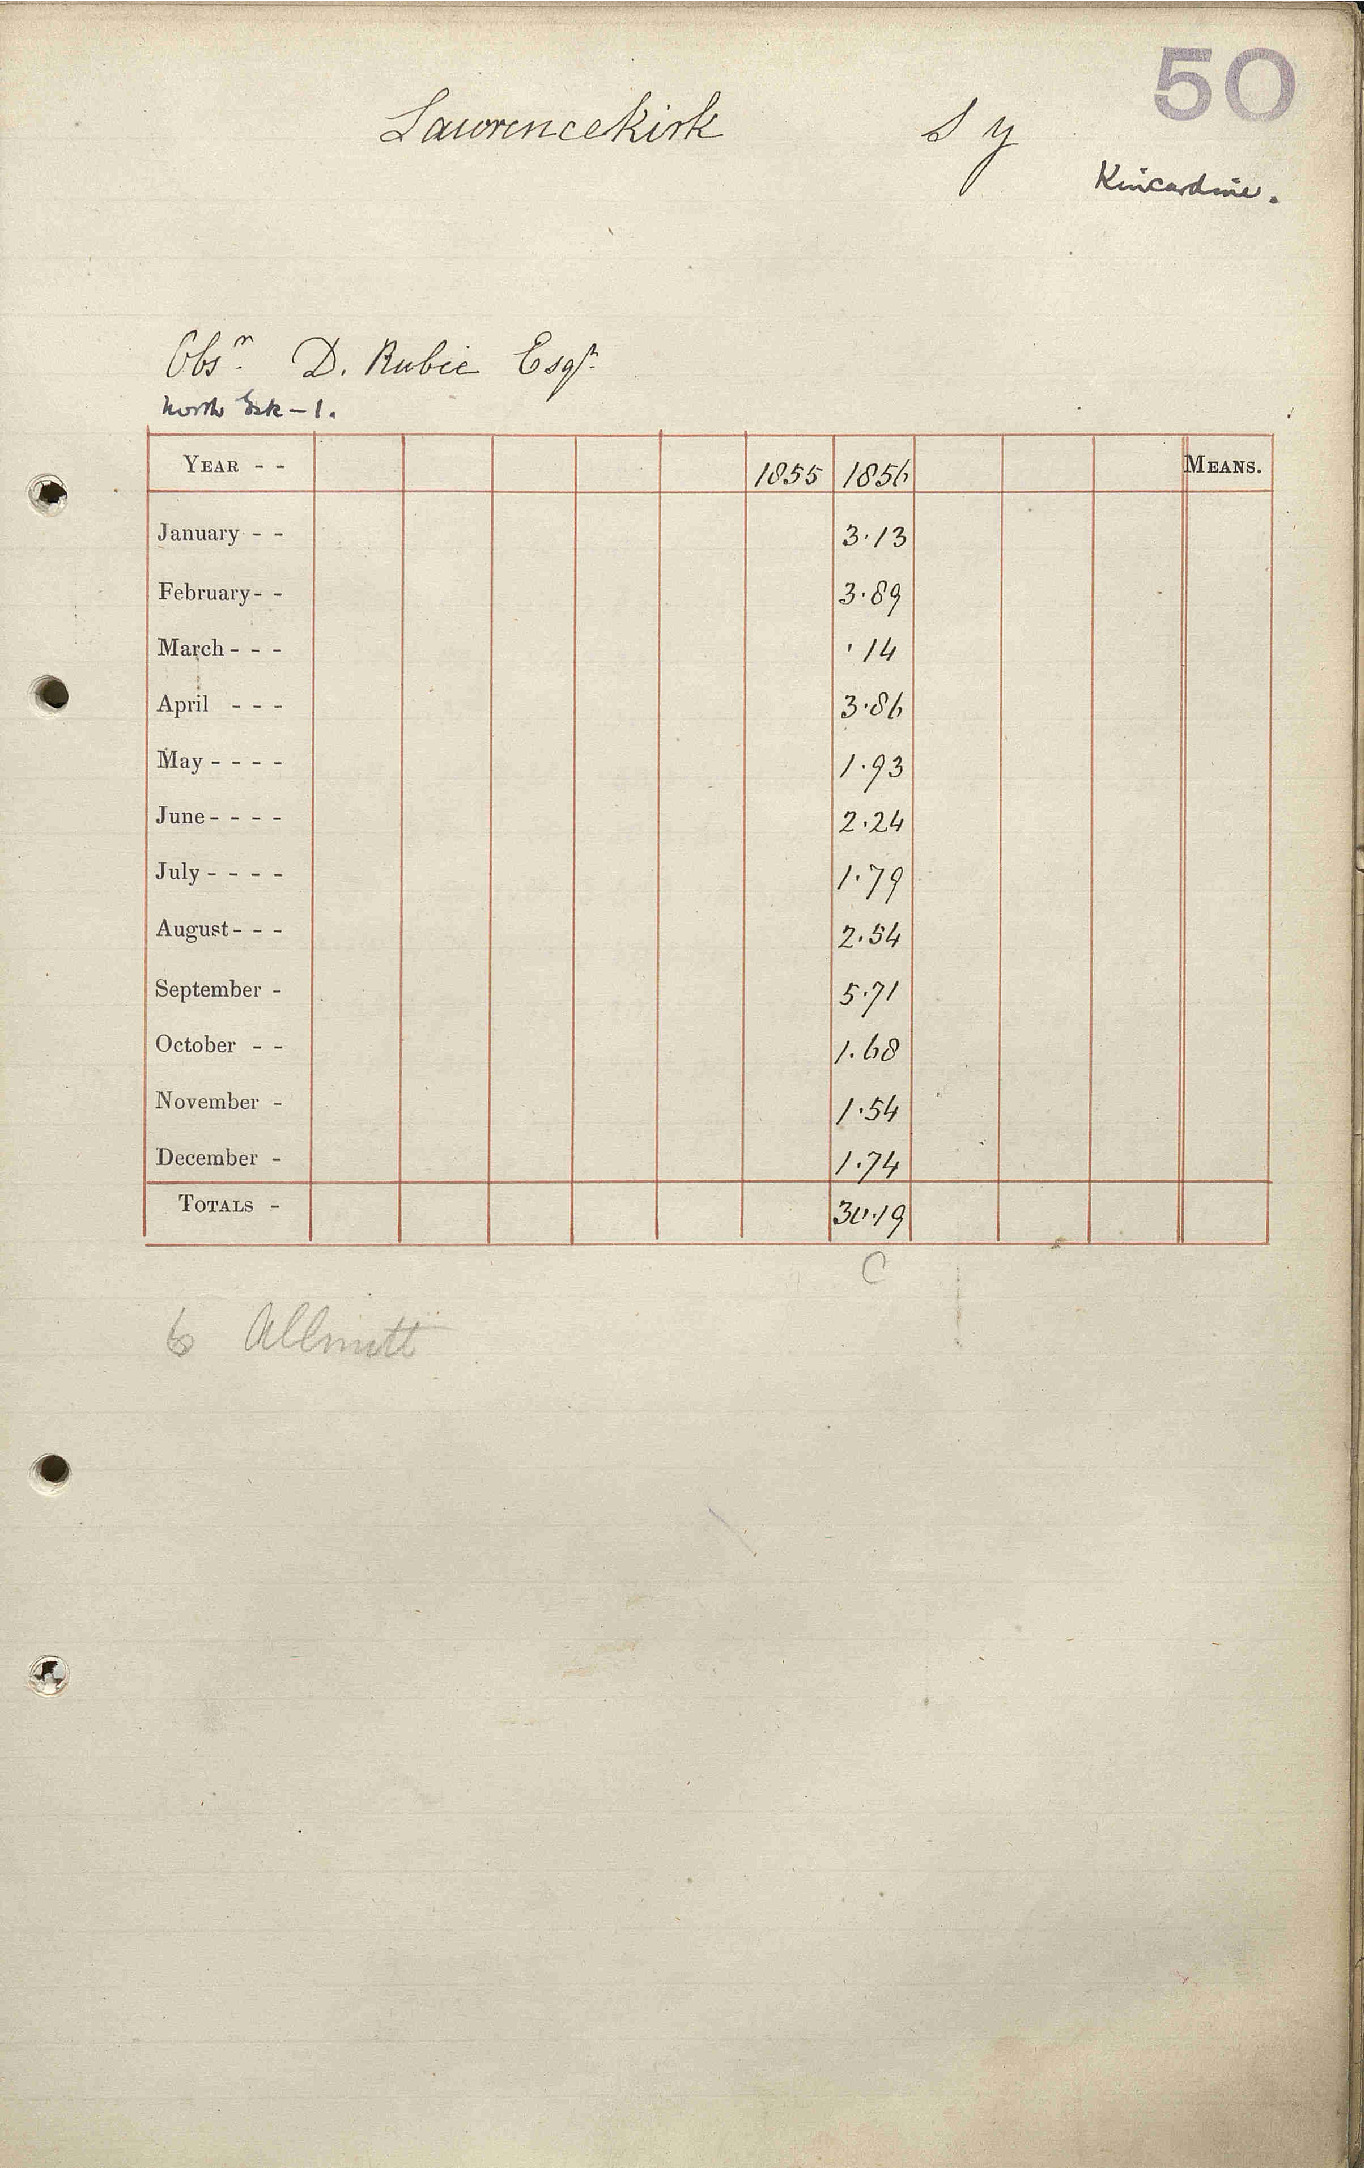 50
Lawrencekirk S y
Kincardine.
Obsr. D. Rubie Esqr.
North Esk – 1.
YEAR - - 1855 1856 MEANS.
January - - 3.13
February - - 3.89
March - - - .14
April - - - 3.86
May - - - - 1.93
June - - - - 2.24
July - - - - 1.79
August - - - 2.54
September - 5.71
October - - 1.68
November - 1.54
December - 1.74
TOTALS - 30.19
C